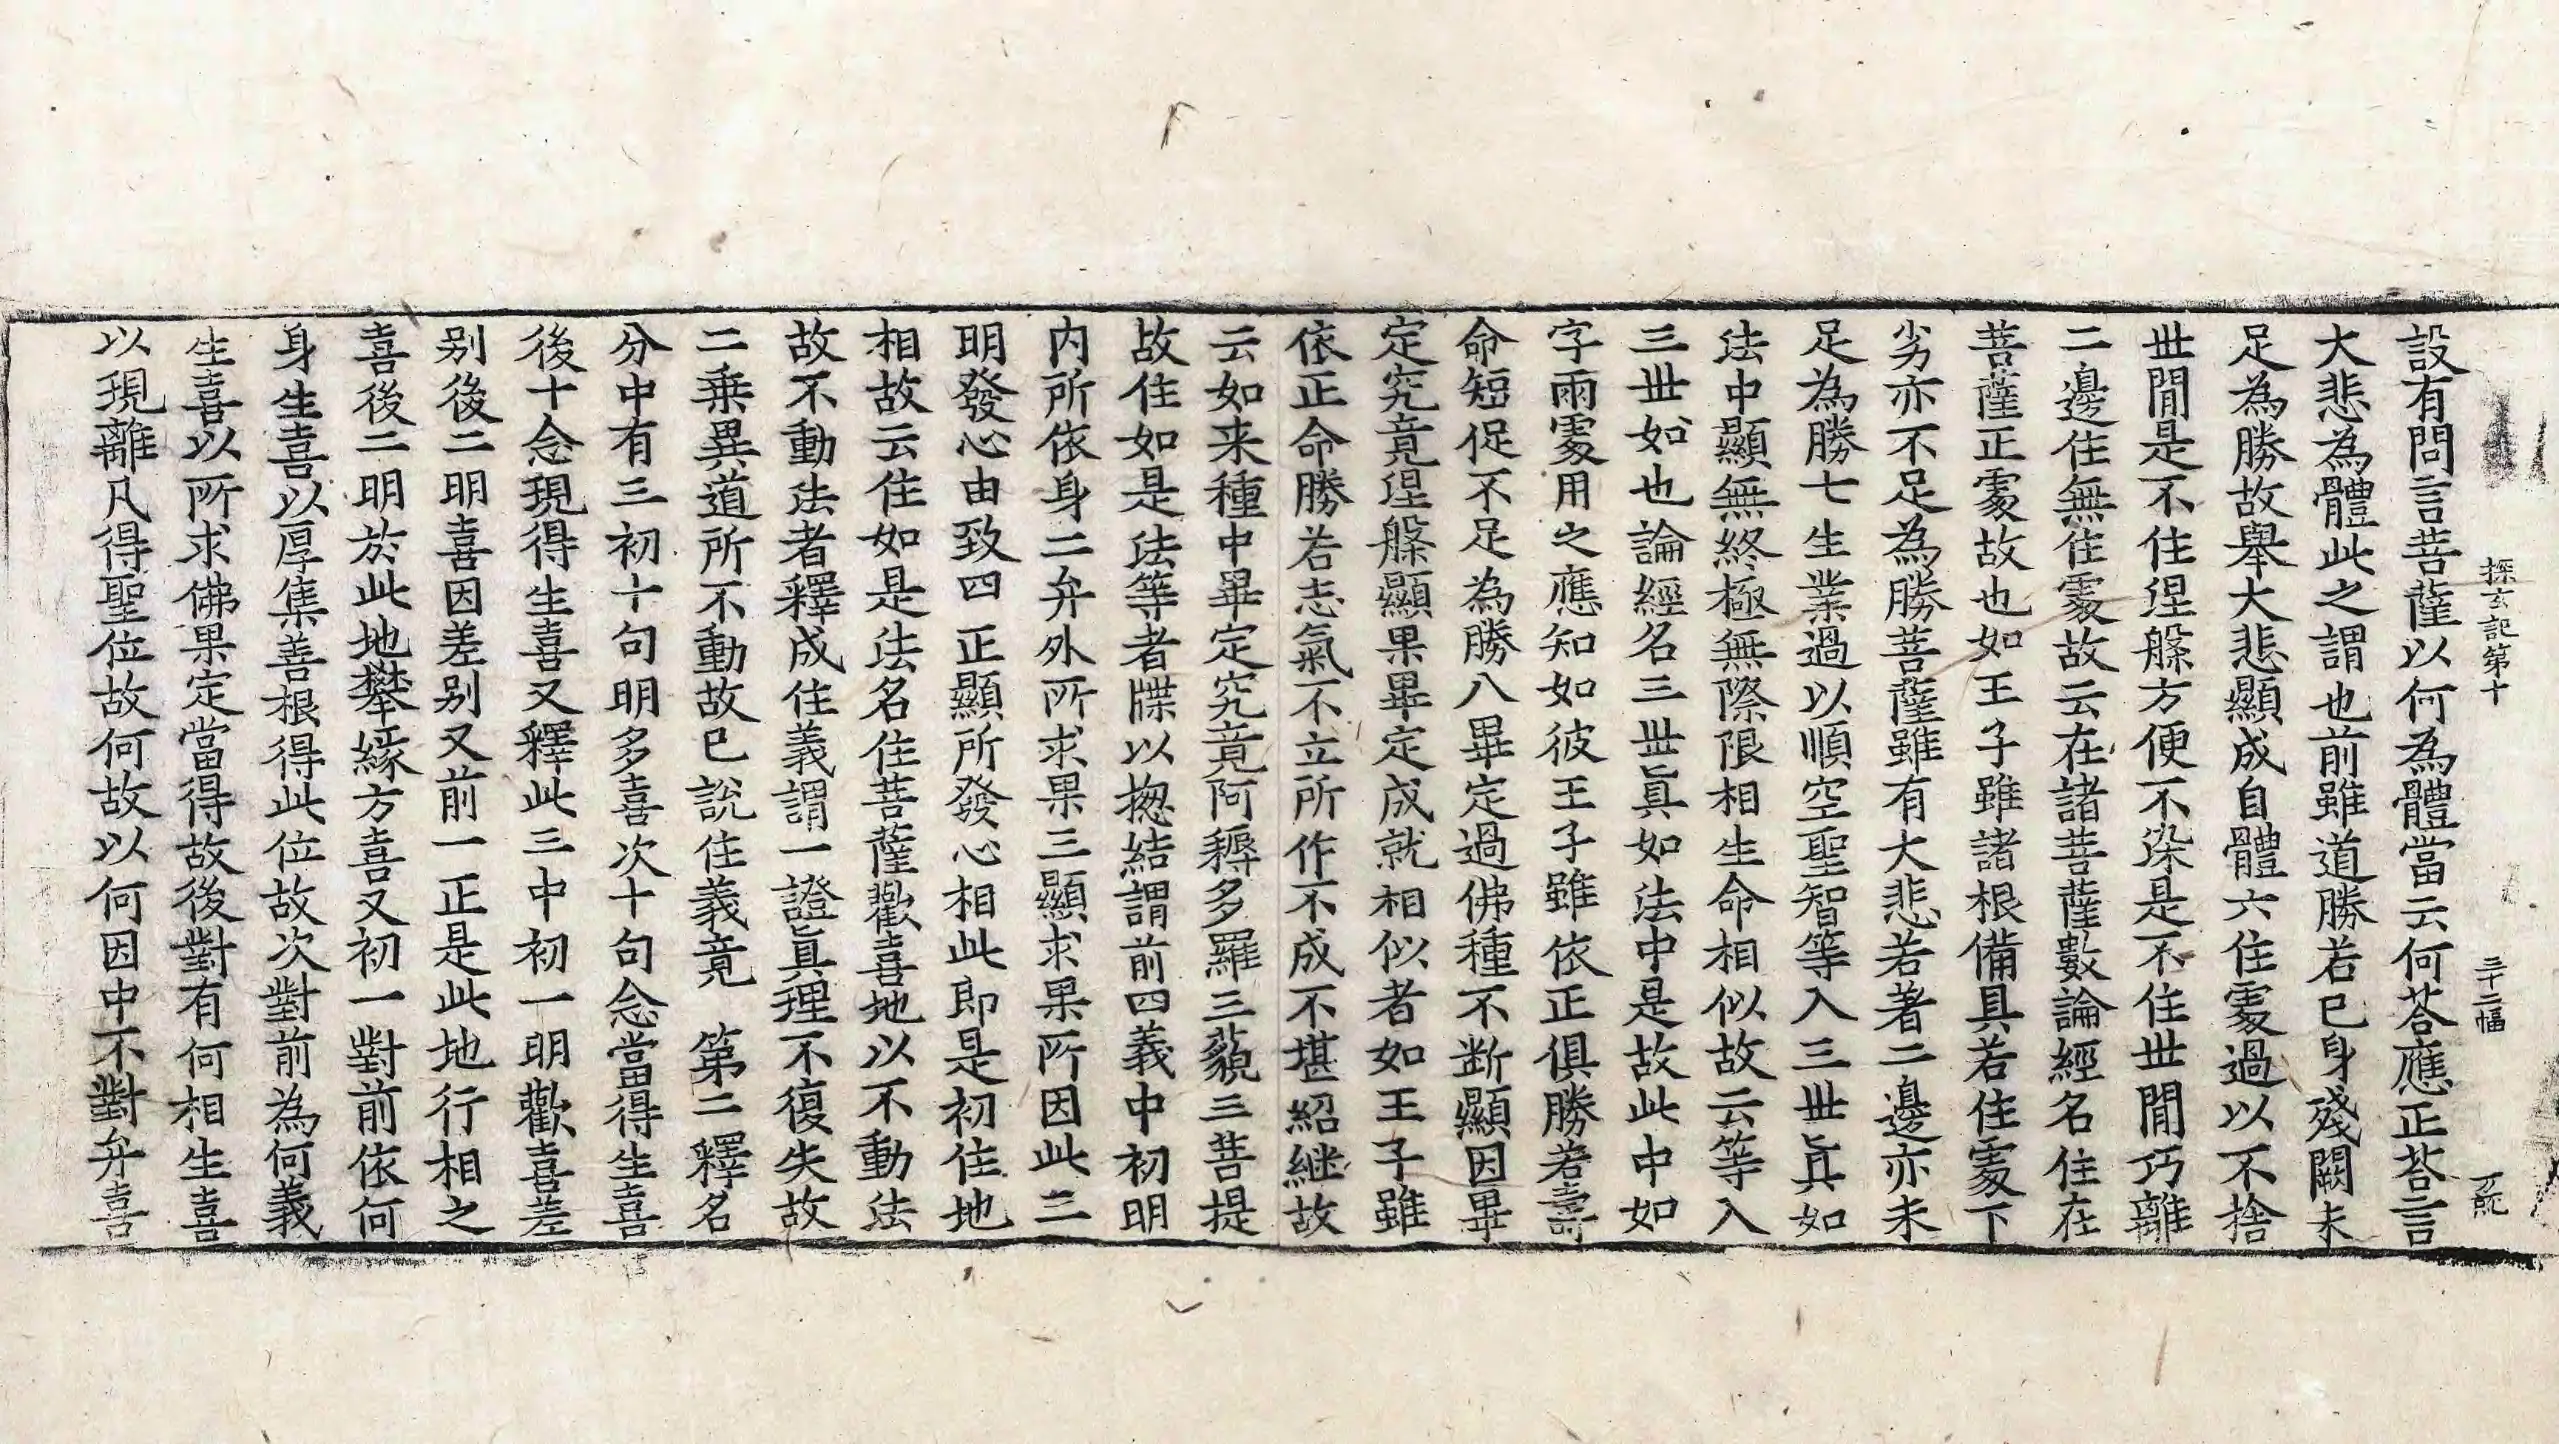 探玄記第十 三十二幅
設有問言菩薩以何為體當云何荅應正荅言
大悲為體此之謂也前雖道勝若已身殘闕未
足為勝故舉大悲顯成自體六住處過以不捨
世間是不住涅槃方便不染是不住世間巧離
二邊住無住處故云在諸菩薩數論經名住在
菩薩正處故也如王子雖諸根備具若住處下
劣亦不足為勝菩薩雖有大悲若著二邊亦未
足為勝七生業過以順空聖智等入三世真如
法中顯無終極無際限相生命相似故云等入
三世如也論經名三世真如法中是故此中如
字兩處用之應知如彼王子雖依正俱勝若壽
命短促不足為勝八畢定過佛種不断顯因畢
定究竟涅槃顯果畢定成就相似者如王子雖
依正命勝若志氣不立所作不成不堪紹継故
云如来種中畢定究竟阿耨多羅三藐三菩提
故住如是法等者牒以揔結謂前四義中初明
内所依身二弁外所求果三顯求果所因此三
明發心由致四正顯所發心相此即是初住地
相故云住如是法名住菩薩歡喜地以不動法
故不動法者釋成住義謂一證真理不復失故
二乗異道所不動故已說住義竟　第二釋名
分中有三初十句明多喜次十句念當得生喜
後十念現得生喜又釋此三中初一明歡喜差
别後二明喜因差别又前一正是此地行相之
喜後二明於此地攀緣方喜又初一對前依何
身生喜以厚集善根得此位故次對前為何義
生喜以所求佛果定當得故後對有何相生喜
以現離凡得聖位故何故以何因中不對弁喜